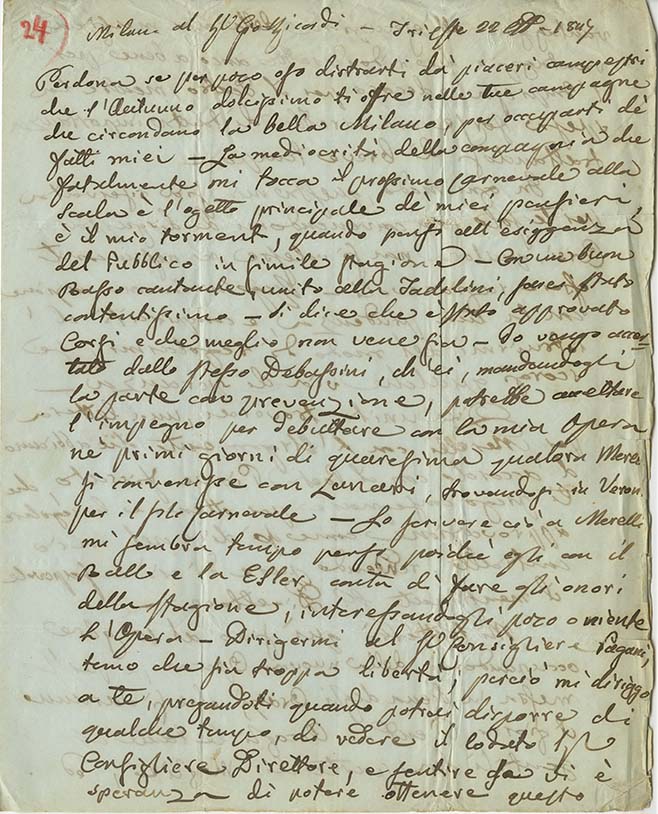 24)
Milano al Sr Gio Ricordi - Trieste 22 - 1847
Perdona se per poco oso distrarti dà piaceri campestri
che l'Autunno dolcissimo ti offre nelle tue campagne
che circondano la bella Milano, per occuparti dè
fatti miei - La mediocrità della compagnia che
fatalmente mi tocca il prossimo Carnevale alla
Scala è l'ogetto principale dè miei pensieri,
è il mio tormento, quando penso all'esiggenza
del Pubblico in simile stagione - Con un buon
Basso cantante, unito alla Tadolini, sarei stato
contentissimo - Si dice che è stato approvato
Corsi e che meglio non ve ne sia - Io vengo accer-
tato dallo stesso Debassini, ch'ei, mandandogli
la parte con prevenzione, potrebbe accettare
l'impegno per debuttare con la mia Opera
nè primi giorni di quaresima qualora Merelli
si convenisse con Lanari, trovandosi in Verona
per il Carnevale - Lo scrivere ciò a Merelli
mi sembra tempo perso poichè egli con il
Ballo e la Esler conta di fare gli onori
della stagione, interessandogli poco o niente
l'Opera - Dirigermi al Sr Consigliere Pagani,
temo che sia troppa libertà, perciò mi diriggo
a te, pregandoti quando potrai disporre di
qualche tempo, di vedere il lodato Sr
Consigliere Direttore, e sentire se vi è
speranza di potere ottenere questo